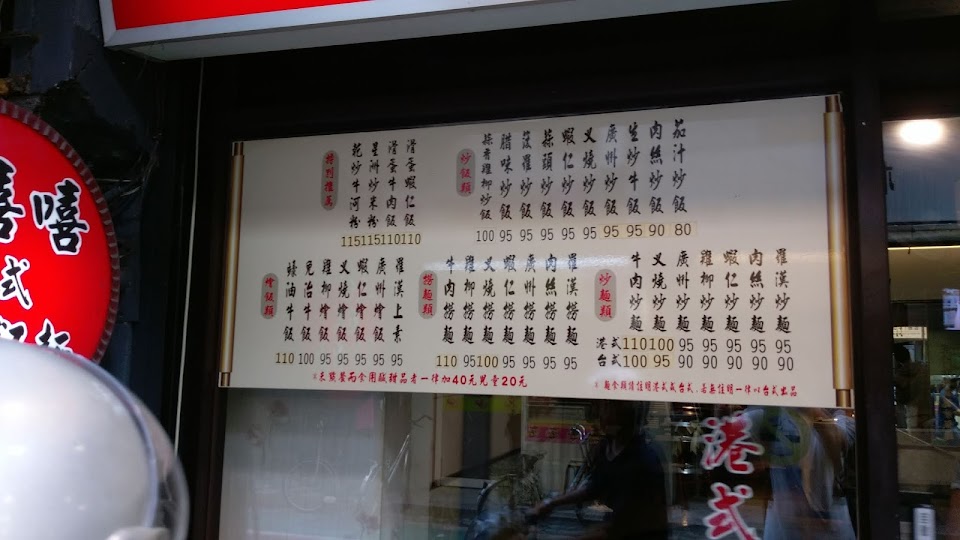 茄汁炒飯 80
肉絲炒飯 90
生炒牛飯 95
廣州炒飯 95
叉燒炒飯 95
蝦仁炒飯 95
蒜頭炒飯 95
菠蘿炒飯 95
腊味炒飯 95
蒜香雞柳炒飯 100
炒飯類
滑蛋蝦仁飯 110
滑蛋牛肉飯 110
星洲炒米粉 115
乾炒牛河粉 115
特別推薦
羅漢炒麵 95 90
肉絲炒麵 95 90
蝦仁炒麵 95 90
雞柳炒麵 95 90
廣州炒麵 95 90
叉燒炒麵 100 95
牛肉炒麵 110 100
港式
台式
炒麵類
羅漢撈麵 95
肉絲撈麵 95
廣州撈麵 95
蝦仁撈麵 95
叉燒撈麵 100
雞柳撈麵 95
牛肉撈麵 110
撈麵類
羅漢上素 95
廣州燴飯 95
蝦仁燴飯 95
叉燒燴飯 95
雞柳燴飯 95
免治牛飯 100
蠔油牛飯 110
燴飯類
一律加40元兒童20元
港式
嘻
式